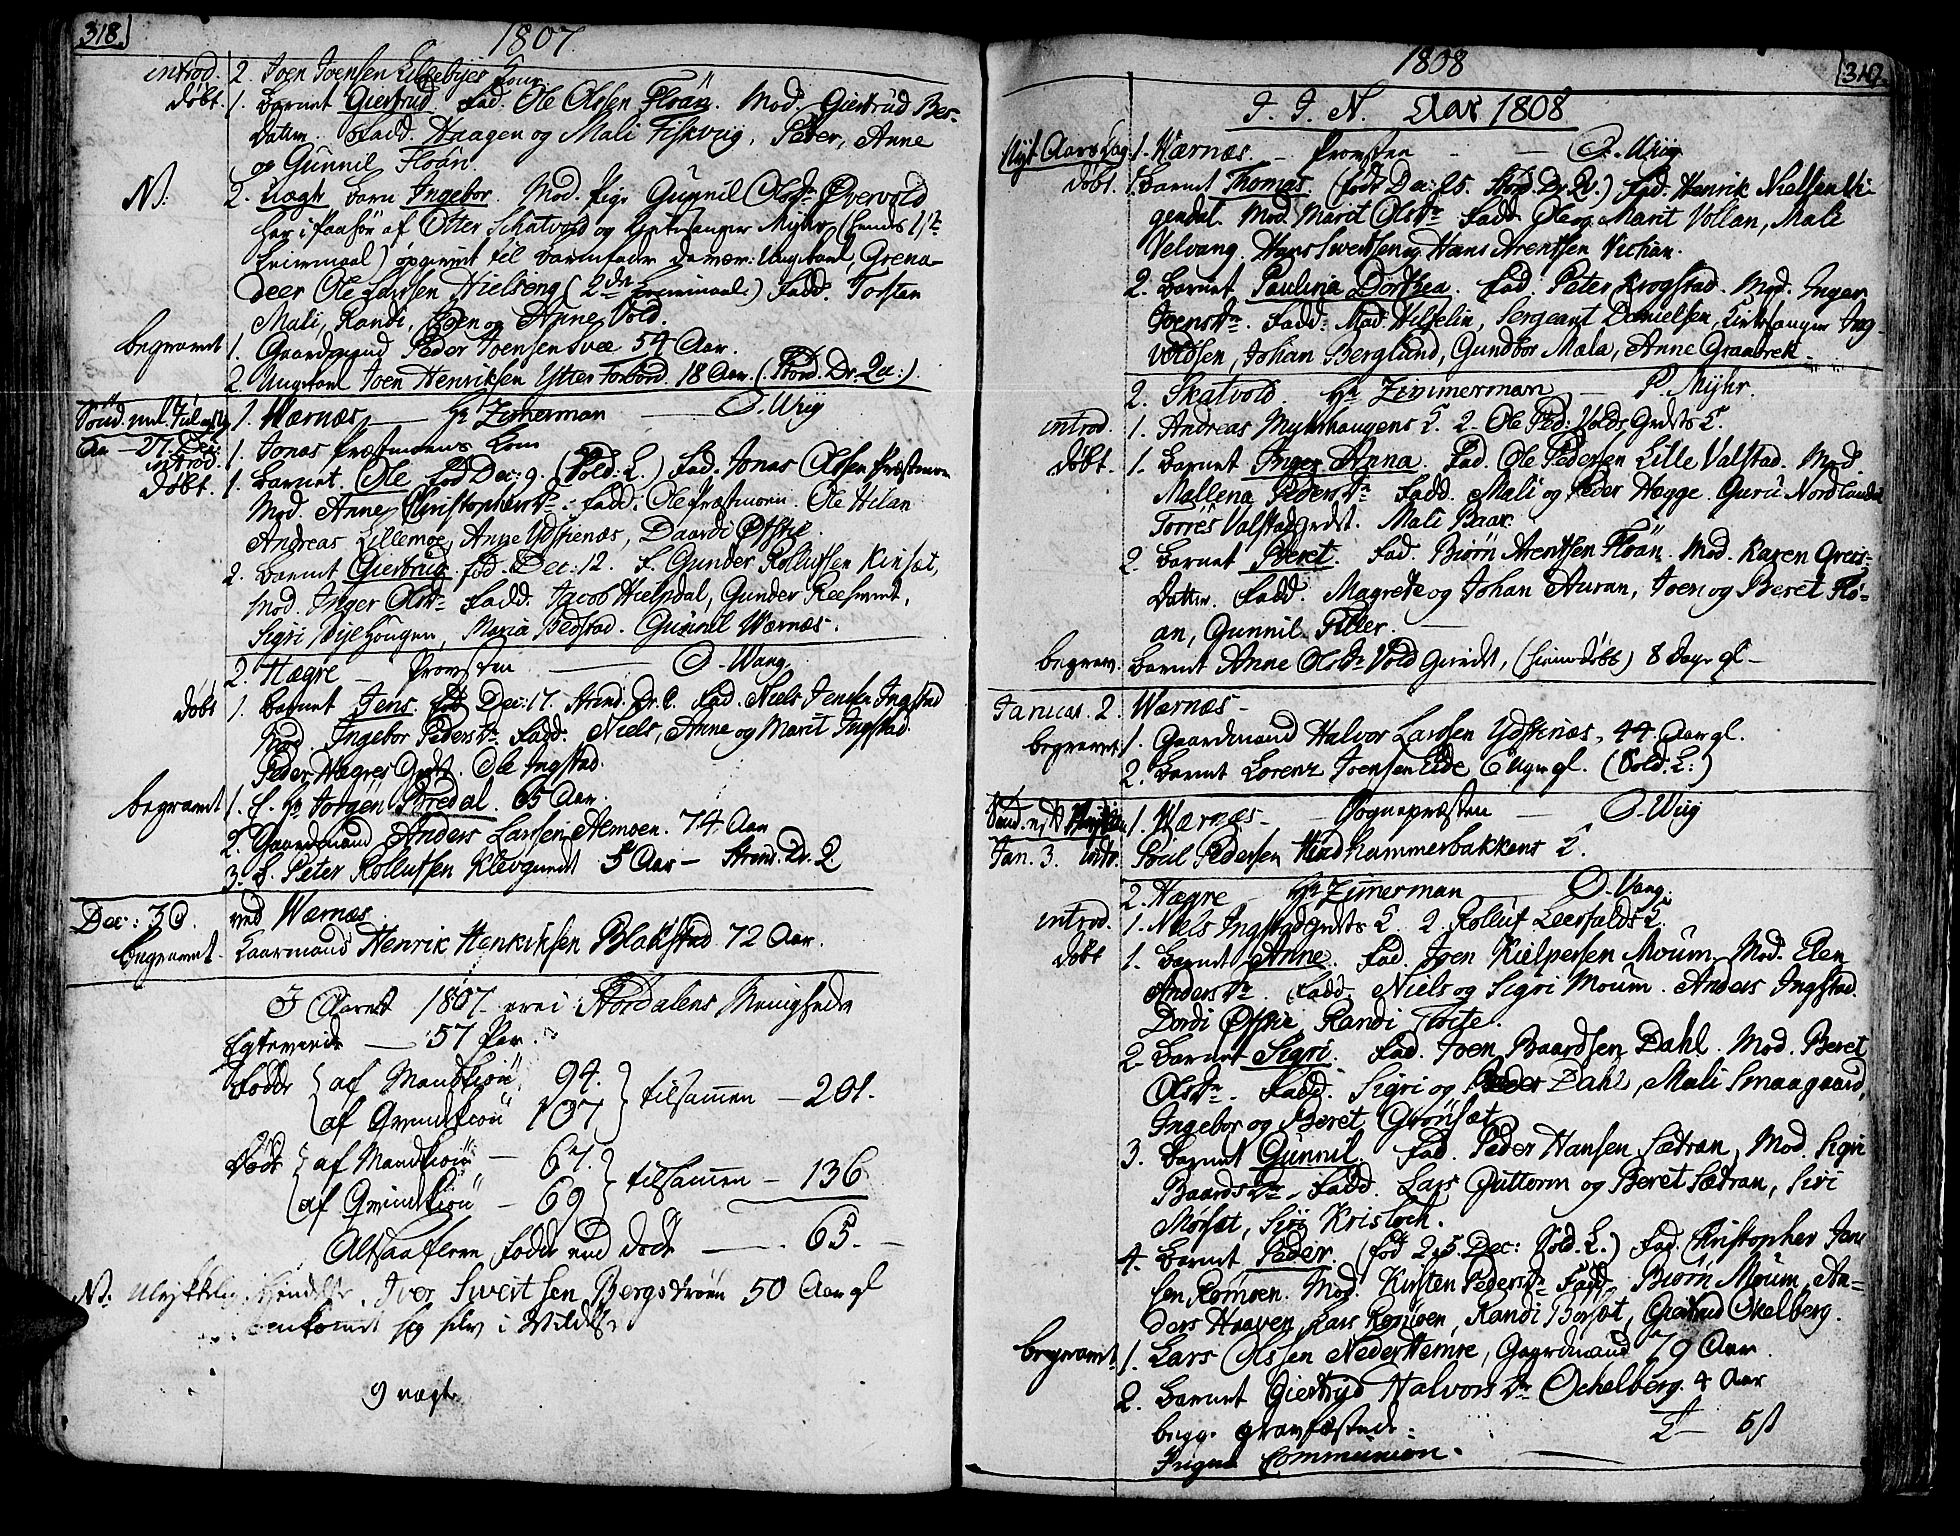 318.
1807
introd. 2. Joen Joensen Lillebyes Kone
døbt. 1. Barnet Giertrud Fad. Ole Olssen Floän. Mod. Giertrud Ber-
datter. Fadd. Haagen og Mali Fiskviig, Peder, Anne
og Gunnil Floän.
N: 2. Uægte barn Ingebor. Mod. Pige Gunnil Olsdr Øvervold
af Otter Schatvold og Myhr (hendes 1ste
Leiermaal) opgivet til barnefader Ungkarl, Grena-
deer Ole Larssen Hielseng (2den Leiermaal) Fadd. Torsten
Mali, Randi, og Anne Vold.
begravet 1. Gaardmand Peder Joensen Svee 54 Aar.
2. Ungkarl Joen Henriksen Ytter Forbord. 18 Aar. (Stord. Dr. Qa:)
Sönd. mel. Jul og Ny 1. Wærnæs — Hr Zimerman — O. Wiig
Aar — 27. Dec:
introd. 1. Jonas Præstmoens Kone
døbt. 1. Barnet Ole fød Dec: 9. (Sold. L.) Fad. Jonas Olssen Præstmoen
Mod. Anne Christophersdr: Fadd. Ole Præstmoen. Ole Hilan
Andreas Lillemoe, Anne Ydstienæs, Daardi Øffstie.
2. Barnet Giertrud fød Dec: 12. F. Gunder Rollufsen Kinsæt,
Mod. Inger Olsdr Fadd. Jacob Hielsdal, Gunder
Sigri Hougen, Maria Bedstad. Gunnil Wærnæs.
2. Hægre — Provsten — O. Wang.
døbt 1. Barnet Jens fød Dec: 17. Strind. Dr. C. Fad. Niels Jensen Ingstad
Mod Ingebor Pedersdr Fadd. Niels, Anne og Marit Ingstad.
Peder Hægres Ole Ingstad.
begravet 1. Hr Jørgen Bredal. 65 Aar.
2. Gaardmand Anders Larssen Aemoen. 74 Aar
3. B. Peter Rollufsen 5 Aar — Strind. Dr. 2.
Dec: 30. ved Wærnæs
begravet. Henrik Henriksen Blakstad 72 Aar.
I Aaret 1807 ere i Størdalens Menighede
Egteviede — 57 Par.
Fødde af Mandkiøn 94. tilsammen — 201.
af Qvindkiøn 107
Døde af Mandkiøn — 67. tilsammen — 136
af Qvindkiøn — 69
Altsaa flere fødde end døde — 65. —
N. Iver Swertsen Bergstrøm 50 Aar gl
sig selv i
9 uægt.
1808
319.
I. I. N. Aar 1808
Nyt-Aars Dag 1. Wærnæs. — Provsten — O. Wiig
døbt. 1. Barnet Thomas. (født Dec: 25. Stord. Dr. Q.) Fad. Henrik Nielsen Vi-
gendal. Mod. Marit Olsdr Fadd. Ole og Marit Vollan, Mali
Velvang. Hans Swertsen og Hans Arentsen Vechan.
2. Barnet Paulina Dorthea. Fad. Peter Krogstad. Mod. Inger
Joensdr. Fadd: Mad. Hilselin, Sergeant Danielsen, Kirkesanger Ing-
voldsen, Johan Berglund, Gundbor Mala, Anne Graabrek.
2. Skatvold. Hr Zimmerman — P. Myhr.
introd. 1. Andreas Myhrhaugens K. 2. Ole Ped: Volds K.
døbt. 1. Barnet Inger Anna. Fad. Ole Pedersen Lille Valstad. Mod.
Mallena Pedersdr Fadd. Mali og Peder Hægge. Guru Nordlandet
Torres Valstad Mali Baar.
2. Barnet Beret. Fad. Biørn Arentsen Floän. Mod. Karen Greis-
datter. Fadd. Magrete og Johan Auran, Joen og Beret Flo-
an, Gunnil Fitler.
begrav. Barnet Anne Olsdr Vold (hiemedøbt) 8 Dage gl —
Januar. 2. Wærnæs —
begravet 1. Gaardmand Halvor Larssen Ydstinæs, 44 Aar gl.
2. Barnet Lorenz Joensen Eide 6 Uger gl. (Sold. L:)
1. Wærnæs — Sognepræsten — O. Wiig
Jan. 3. intr. Poul Pedersen hammerbakkens K.
2. Hægre — Hr Zimerman — O. Vang.
introd. 1. Niels Ingstad K. 2 Rolluf Leerfalds K.
døbt 1. Barnet Anne. Fad. Joen Kielpersen Moum. Mod. Elen
Andersdr. Fadd. Niels og Sigri Moum. Anders Ingstad.
Dordi Øffstie, Randi
2. Barnet Sigri. Fad. Joen Baardsen Dahl. Mod. Beret
Olsdr. Fadd. Sigri og Peder Dahl, Mali Smaagaard,
Ingebor og Beret Grønsæt.
3. Barnet Gunnil. Fad. Peder Hansen Sætran, Mod. Sigri
Baardsdr — Fadd. Lars Guttorm og Beret Sætran, Siri
Mørsæt, Siri
4. Barnet Peder. (fød 25. Dec: Sold. L.) Fad. Kristopher Jan-
sen Romoen. Mod. Kirsten Pedersdr Fadd. Biørn Moum, An-
ders Haaven, Lars Romoen, Randi Borsæt, Giertrud Okelberg.
begravet 1. Lars Olssen NederHemre, Gaardmand 79 Aar.
2. Barnet Giertryd Halvorsdr Ochelberg. 4 Aar
begge gravfæstede
Ingen Communion.